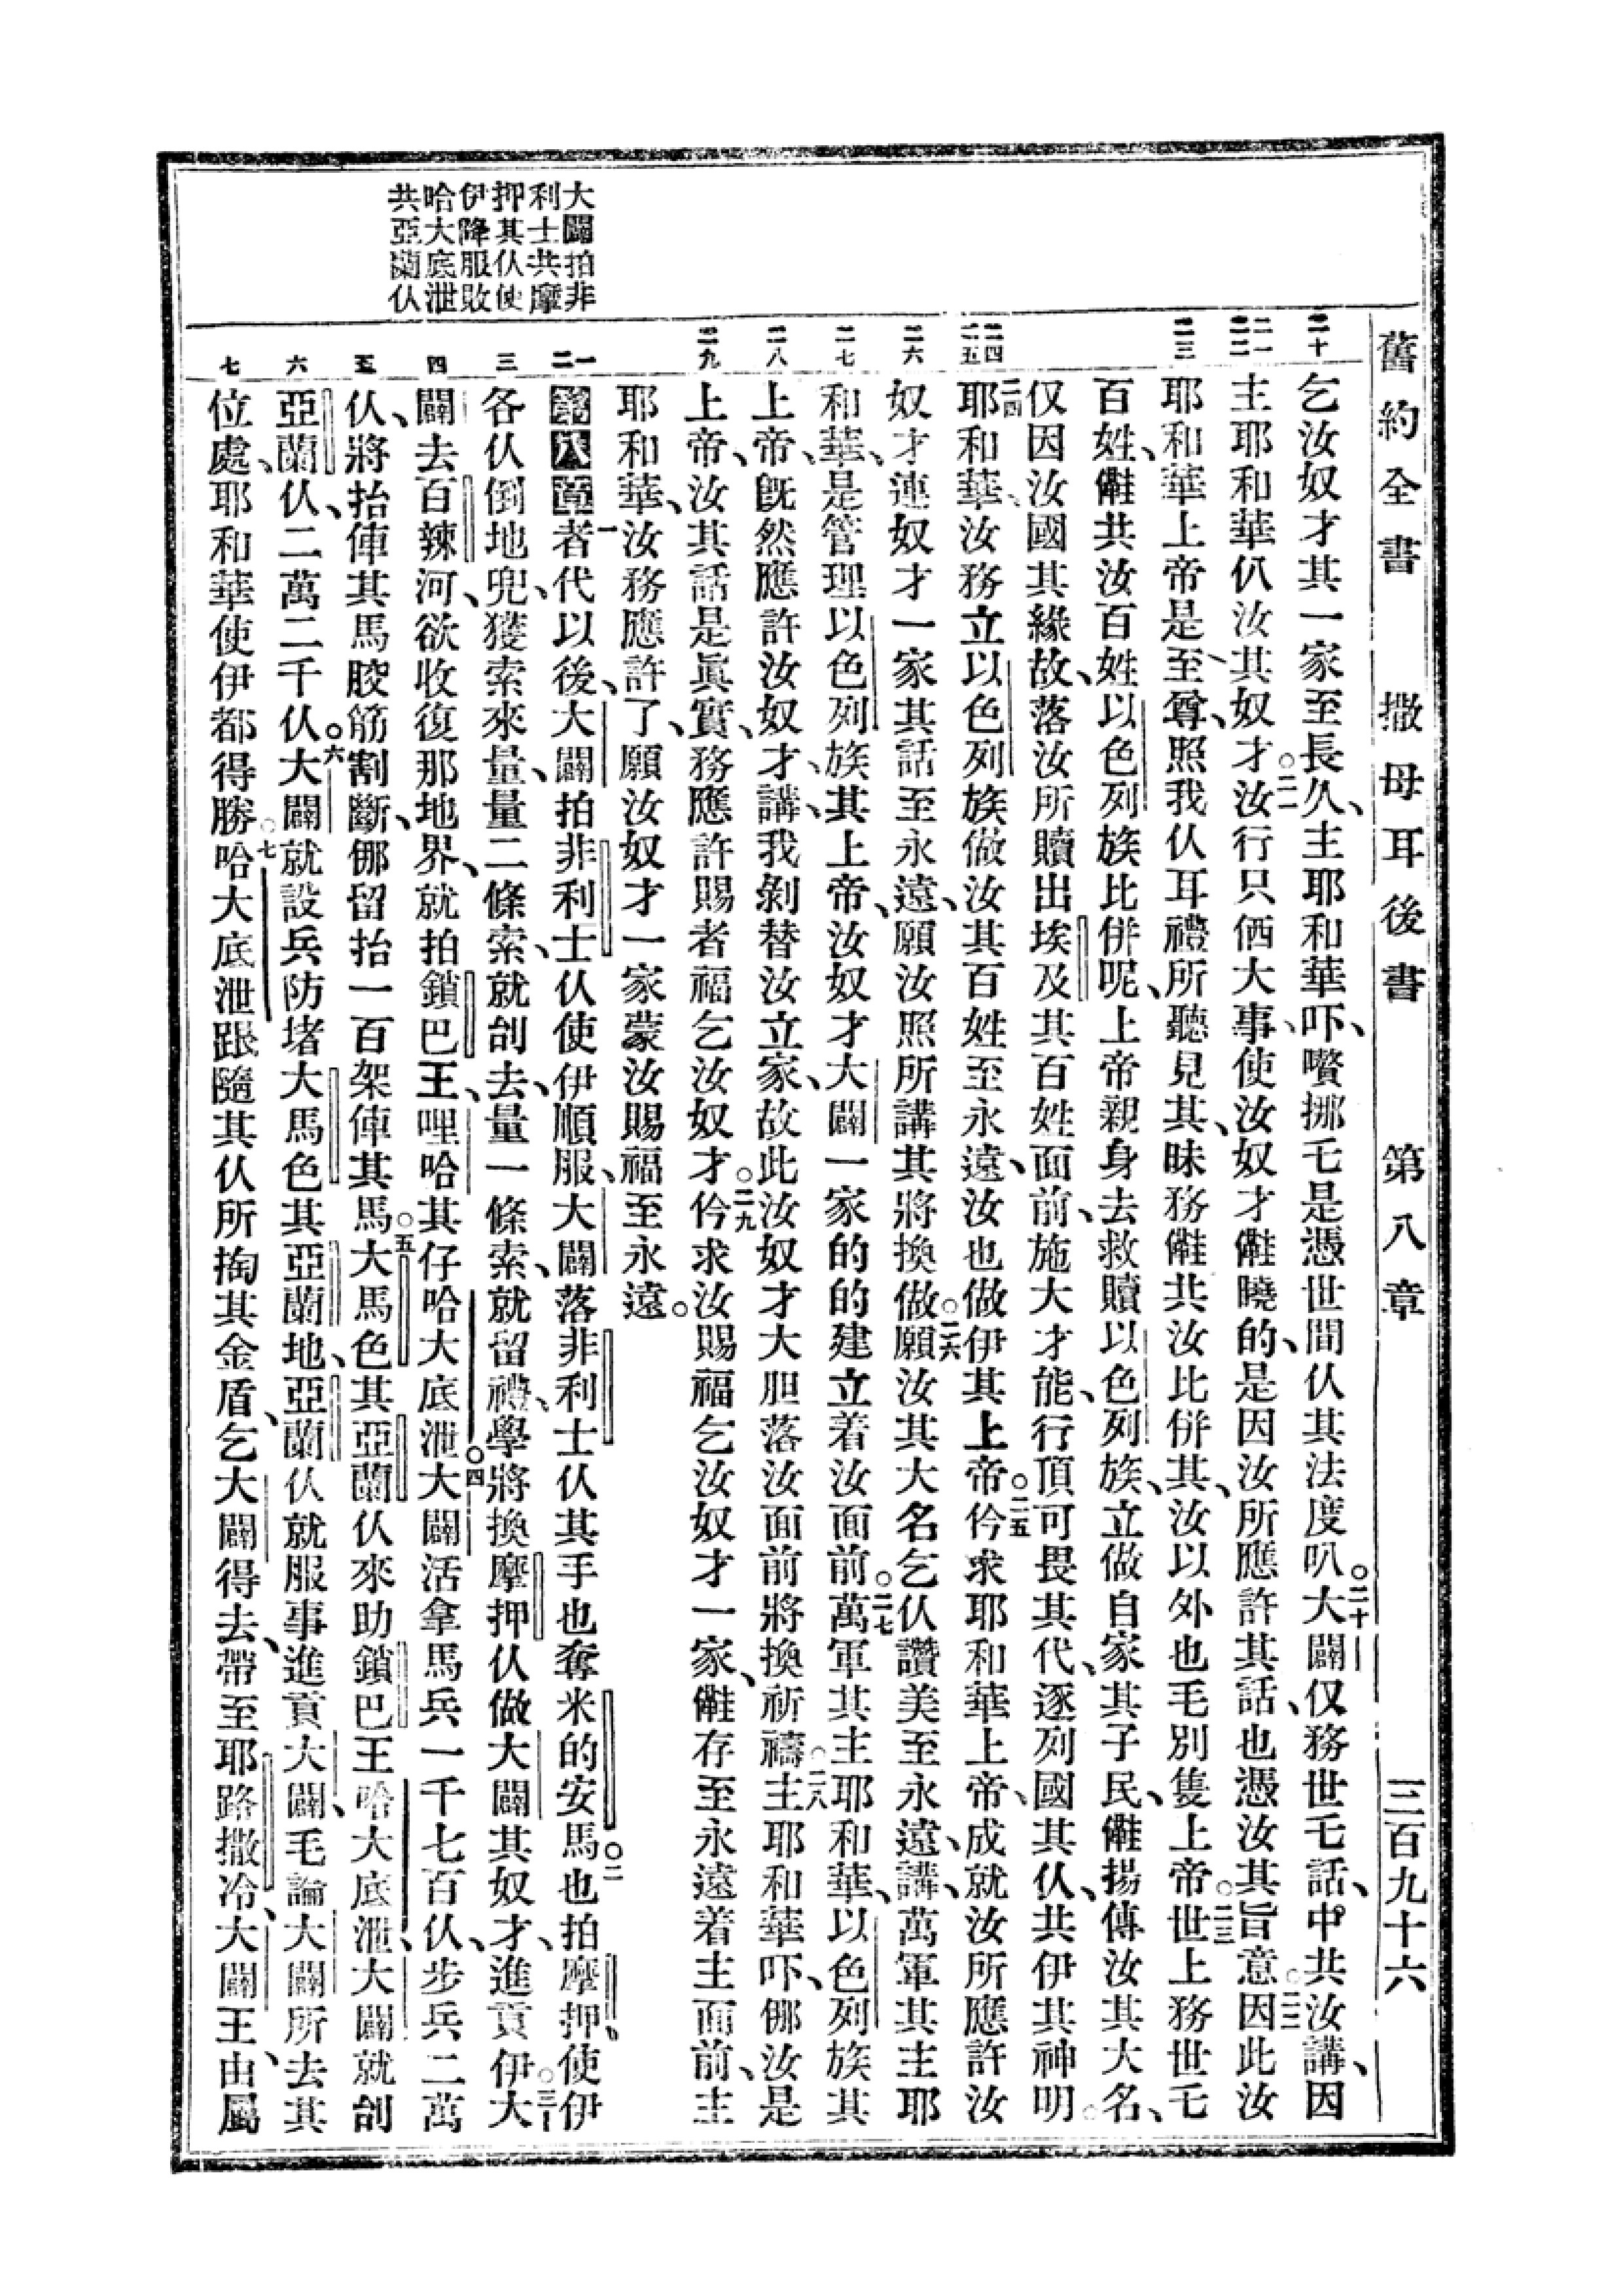 舊約全書　撒母耳後書　第八章　三百九十六
二十
二一
二二
二三
二四
二五
二六
二七
二八
二九
一
二
三
四
五
六
七
大闢拍非
利士共摩
押其仈使
伊降服敗
哈大底泄
共亞蘭仈
乞汝奴才其一家至長久、主耶和華吓、嚽挪乇是憑世間仈其法度叭。二十大闢仅務世乇話、中共汝講、因
主耶和華仈汝其奴才。二一汝行只傌大事、使汝奴才儺曉的、是因汝所應許其話、也憑汝其旨意。二二因此汝
耶和華上帝是至尊、照我仈耳禮所聽見其、昧務儺共汝比併其、汝以外也毛別隻上帝。二三世上務世乇
百姓、儺共汝百姓以色列族比併呢、上帝親身去救贖以色列族、立做自家其子民、儺揚傳汝其大名、
仅因汝國其緣故、落汝所贖出埃及其百姓面前、施大才能、行頂可畏其代、逐列國其仈、共伊其神明。
二四耶和華、汝務立以色列族做汝其百姓至永遠、汝也做伊其上帝。二五仱求耶和華上帝、成就汝所應許汝
奴才連奴才一家其話至永遠、願汝照所講其將換做。二六願汝其大名乞仈讚美至永遠、講、萬軍其主耶
和華、是管理以色列族其上帝、汝奴才大闢一家的的建立着汝面前。二七萬軍其主耶和華、以色列族其
上帝、旣然應許汝奴才、講、我剝替汝立家、故此汝奴才大胆落汝面前將換祈禱。二八主耶和華吓、㑚汝是
上帝、汝其話是眞實、務應許賜者福乞汝奴才。二九仱求汝賜福乞汝奴才一家、儺存至永遠着主面前、主
耶和華、汝務應許了、願汝奴才一家蒙汝賜福至永遠。
第八章　一者代以後、大闢拍非利士仈、使伊順服、大闢落非利士仈其手也奪米的安馬。二也拍摩押、使伊
各仈倒地兜、獲索來量、量二條索、就刣去、量一條索、就留禮、學將換摩押仈做大闢其奴才、進貢伊。三大
闢去百辣河、欲收復那地界、就拍鎖巴王、哩哈其仔哈大底泄。四大闢活拿馬兵一千七百仈、步兵二萬
仈、將抬俥其馬骹筋割斷、㑚留抬一百架俥其馬。五大馬色其亞蘭仈來助鎖巴王哈大底泄、大闢就刣
亞蘭仈、二萬二千仈。六大闢就設兵防堵大馬色其亞蘭地、亞蘭仈就服事進貢大闢、毛論大闢所去其
位處、耶和華使伊都得勝。七哈大底泄跟隨其仈所掏其金盾、乞大闢得去、帶至耶路撒冷、大闢王、由屬